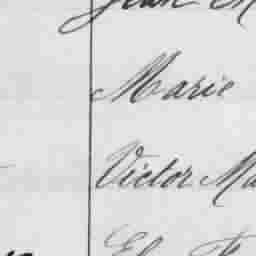 Jean M
Marie
Victor Ma